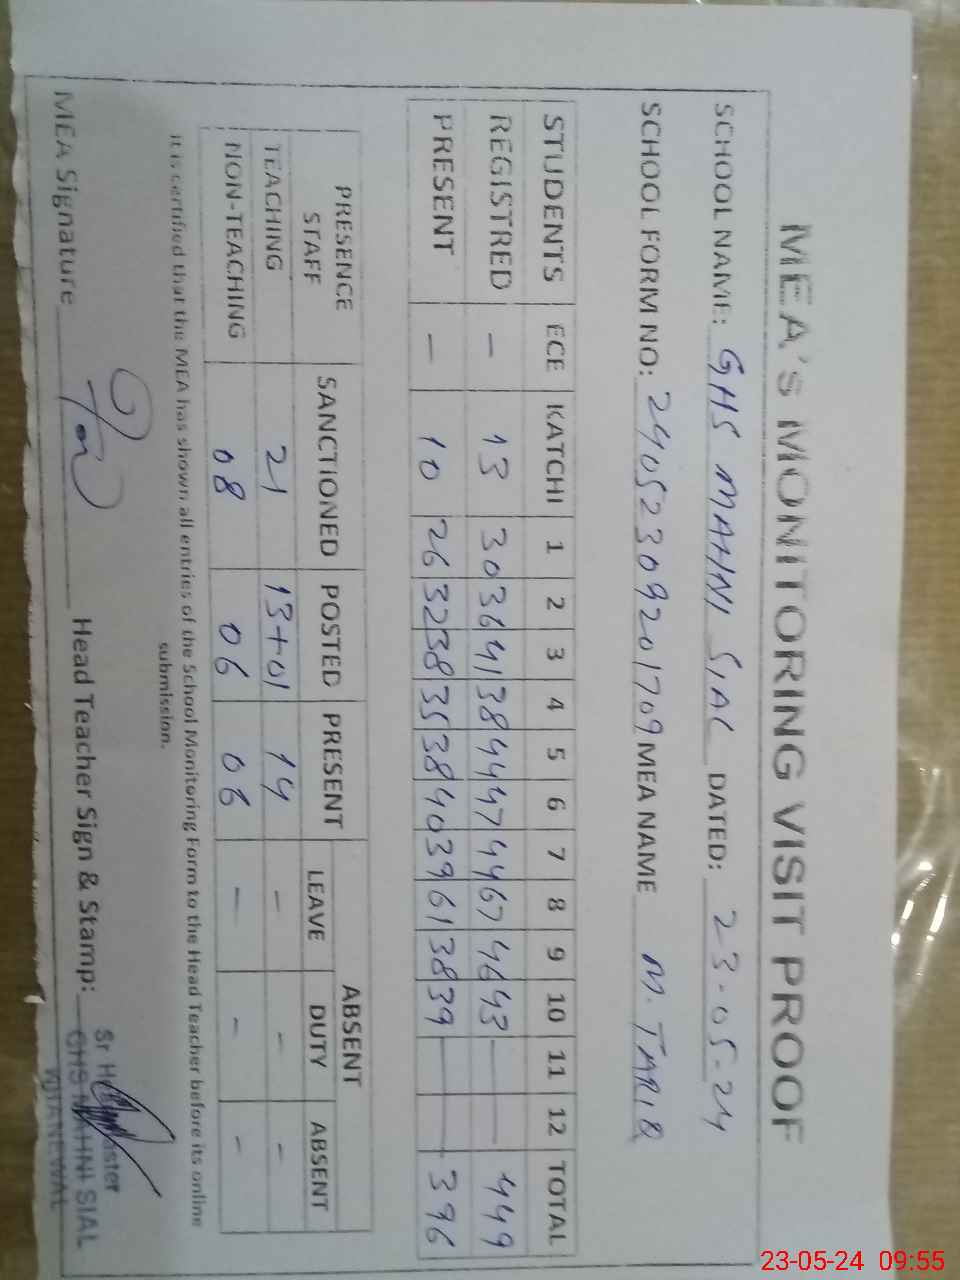 MEA'S MONITORING VISIT PROOF
SCHOOL NAME: GHS MAHNI SIAL DATED: 23-05-24
SCHOOL FORM NO: 24052309201709 MEA NAME M. TARIQ
STUDENTS ECE KATCHI 1 2 3 4 5 6 7 8 9 10 11 12 TOTAL
REGISTRED - 13 30 36 41 38 44 47 44 67 46 43 — — 449
PRESENT - 10 26 32 38 35 38 40 39 61 38 39 — — 396
PRESENCE STAFF SANCTIONED POSTED PRESENT ABSENT
LEAVE DUTY ABSENT
TEACHING 21 13+01 14 - - -
NON-TEACHING 08 06 06 - - -
It is certified that the MEA has shown all entries of the School Monitoring Form to the Head Teacher before its online
submission.
MEA Signature Head Teacher Sign & Stamp:
Sr
GHS MAHNI SIAL
23-05-24 09:55